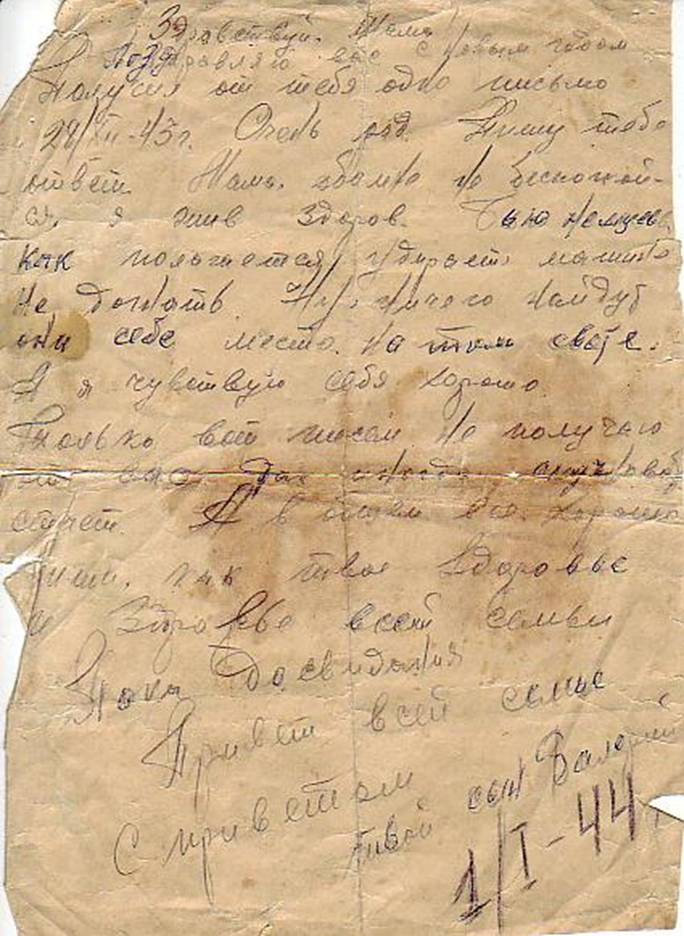 Здравствуй. Мама
Поздравляю вас с Новым годом
Получил от тебя одно письмо
28/XII-43г. Очень рад. Пишу тебе
ответ. Мама, обо мне не беспокой-
ся, я жив здоров. Бью немцев,
как полагается, удирает, машиной
не догнать. Ну ничего найдут
они себе место. На том свете.
А я чувствую себя хорошо.
Только вот писем не получаю
от вас. Так иногда скучновато
станет. А в общем все хорошо
Пиши, как твое здоровье
и здоровье всей семьи
Пока Досвидания
Привет всей семье
С приветом
твой сын Валерий
1/I-44